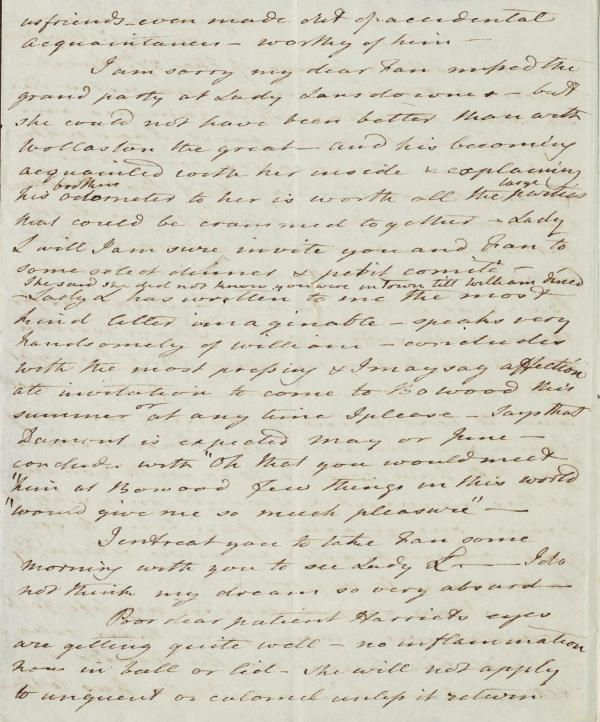 us friends - even made out of accidental
acquaintances - worthy of him -
I am sorry my dear Fan missed the
grand party at Lady Lansdownes - but
she could not have been better than with
Wollaston the great - and his becoming
acquainted with her inside & explaining
his brothers odometer to her is worth all the large parties
that could be crammed together - Lady
L will I am sure invite you and Fan to
some select dinner & petit comité -
She said she did not know you were in town till William dined
- Lady L has written to me the most
kind letter imaginable - speaks very
handsomely of William - concludes
with the most pressing & I may say affection
ate invitation to come to Bowood this
summer or at any time I please - Says that
Dumont is expected May or June -
concludes with "Oh that you would meet
"him at Bowood few things in this world
"would give me so much pleasure" -
I entreat you to take Fan some
morning with you to see Lady L. - I do
not think my dream so very absurd -
Poor dear patient Harriets eyes
are getting quite well - no inflammation
now in ball or lid - she will not apply
to unguent or calomel unless it return